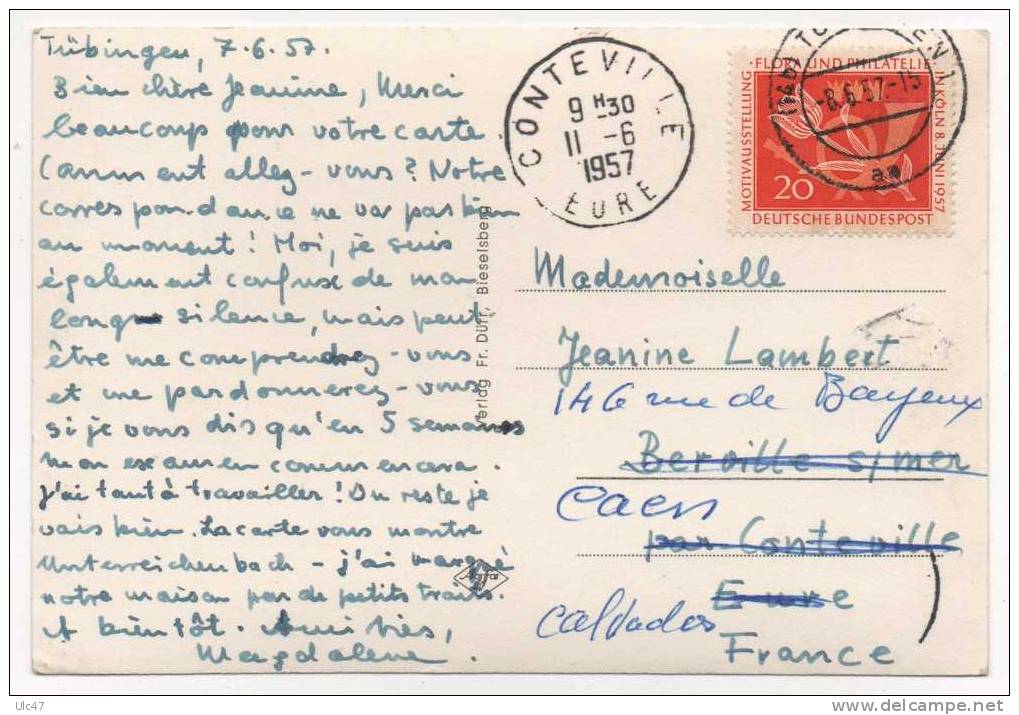 Tübingen, 7.6.57.
Bien chère Jeanine, Merci
beaucoup pour votre carte
Comment allez-vous? Notre
correspondance ne va pas bien
au moment! Moi, je suis
également confuse de mon
long silence, mais peut-
être me comprendrez-vous
et me pardonnerez-vous
si je vous dis qu'en 5 semaines
mon examen commencera.
J'ai tant à travailler! Du reste je
vais bien. La carte vous montre
Unterreichenbach - j'ai marqué
notre maison par de petits traits.
A bientôt. Amitiés,
Magdalene.
Verlag Fr. Dürr, Bieselsberg
CONTEVILLE
9 H30
11 -6
1957
EURE
-8.6.57-15
aa
MOTIVAUSSTELLUNG · FLORA UND PHILATELIE IN KÖLN 8. JUNI 1957
20
DEUTSCHE BUNDESPOST
Mademoiselle
Jeanine Lambert
146 rue de Bayeux
Berville s/mer
Caen
par Conteville
Eure
Calvados
France
Ulc47